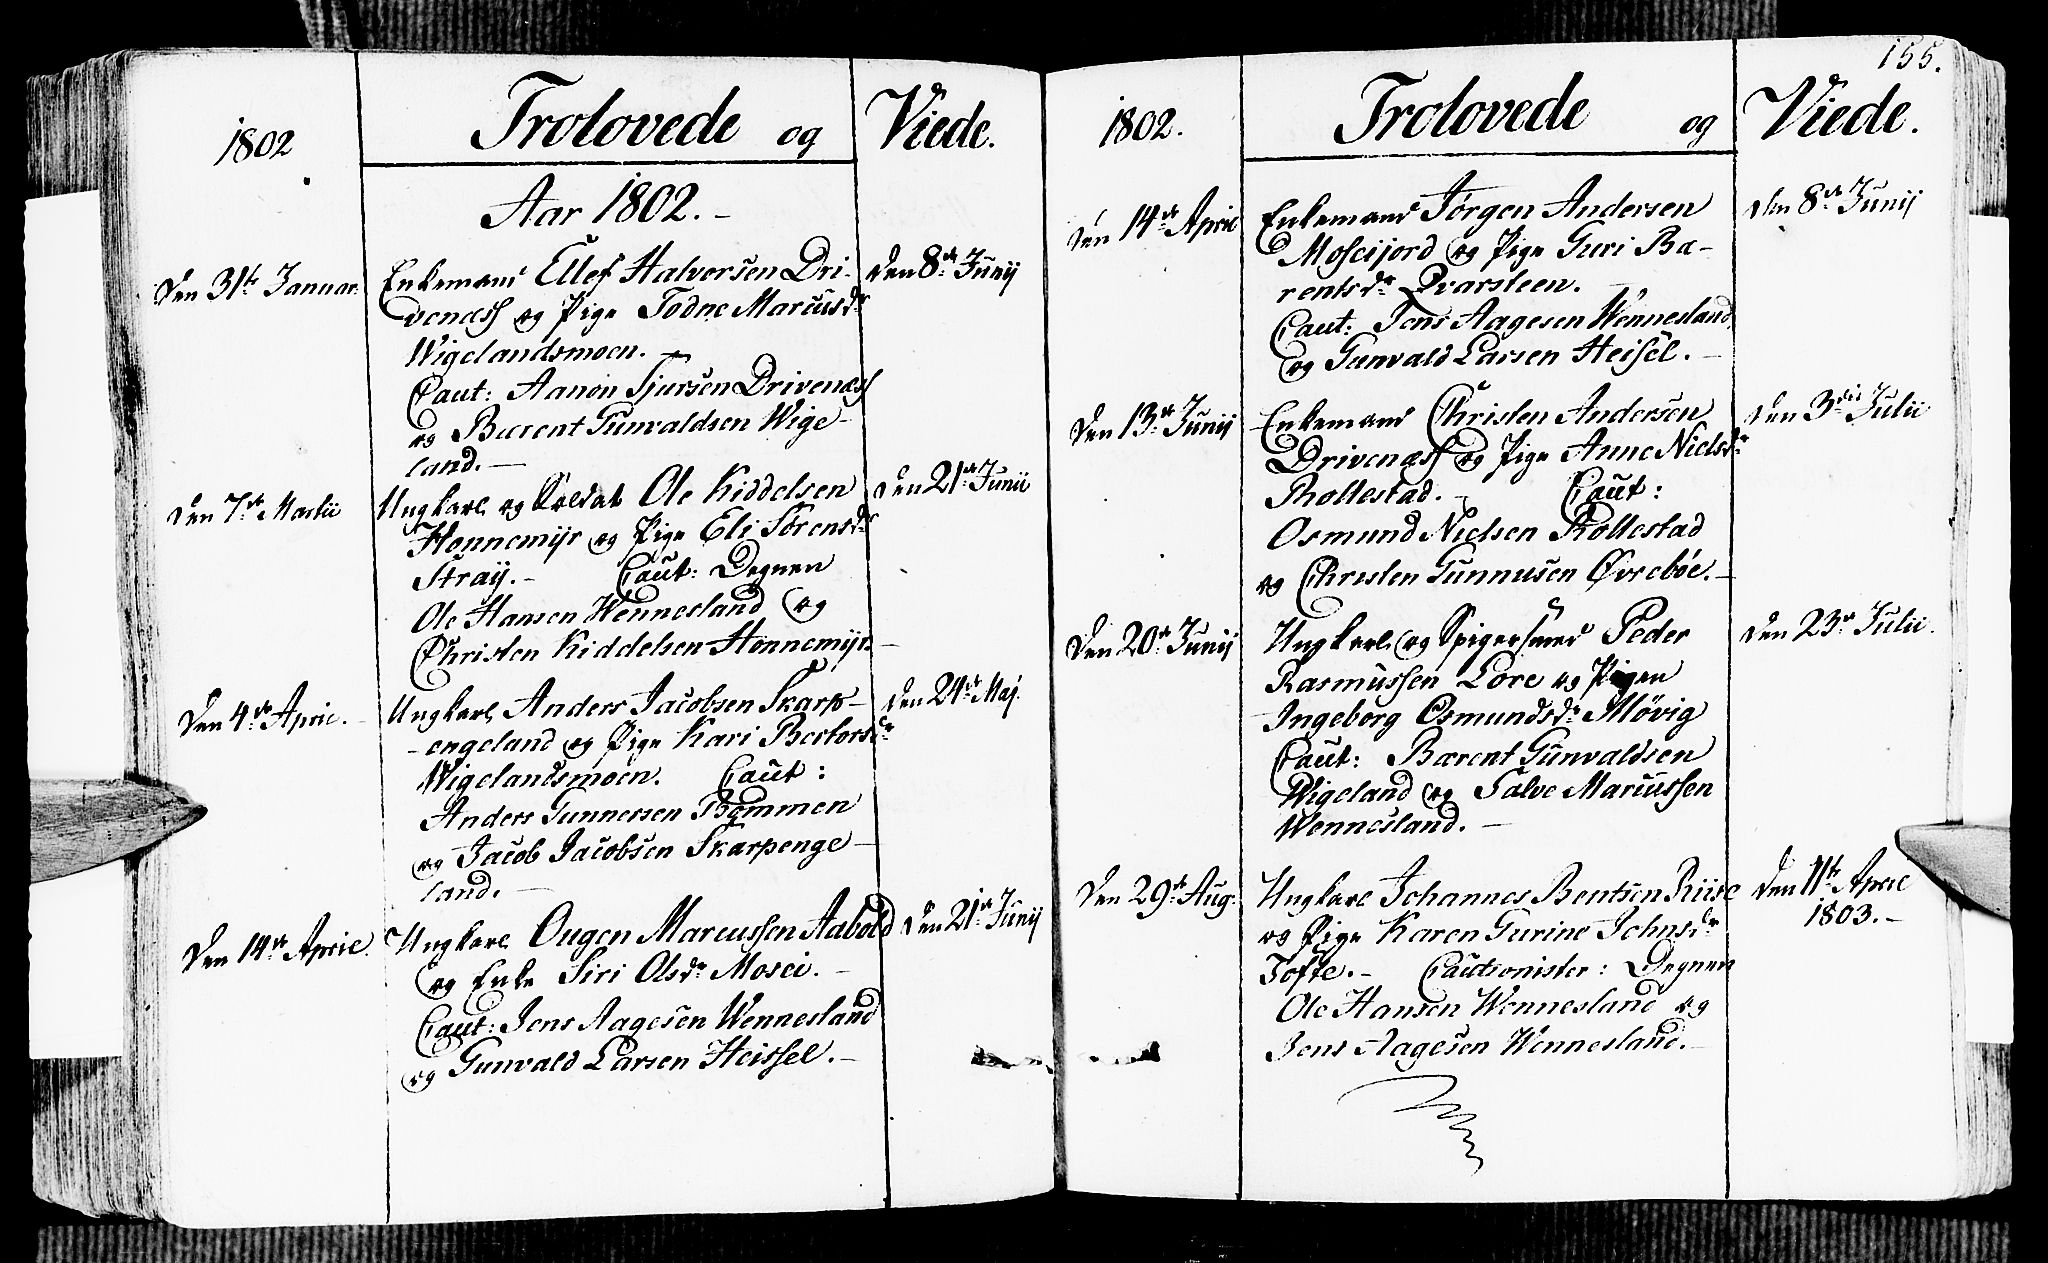 1802
Trolovede og Viede.
Aar 1802. -
Den 31te Januar.
Enkemand Ellef Halvorsen Dri-
venæss og Pige Todne Marcusdr
Wigelandsmoen. -
Caut: Aanon Sjursen Drivenæss
og Barent Gunvaldsen Wige-
land. -
Den 8de Junij
Den 7de Martii
Ungkarl og Soldat Ole Kiddelsen
Honnemijr og Pige Eli Sørensdr
Straij. - Caut: Degnen
Ole Hansen Wennesland og
Christen Kiddelsen Honnemijr. -
Den 21de Junii
Den 4de April. -
Ungkarl Anders Jacobsen Skarp-
engeland og Pige Kari Berthorsdr
Wigelandsmoen. Caut:
Anders Gunnersen Bommen
og Jacob Jacobsen Skarpenge-
land. -
Den 24de Maj.
Den 14de April.
Ungkarl Ougen Marcussen Aabold
og Enke Siri Olsdr Mosei. -
Caut: Jens Aagesen Wennesland
og Gunvald Larsen Heissel. -
Den 21de Junij
155.
1802.
Trolovede og Viede.
Den 14de April
Enkemand Jørgen Andersen
Moseijord og Pige Guri Ba-
rentsdr Qvarsteen. -
Caut: Jens Aagesen Wennesland,
og Gunvald Larsen Heisel. -
Den 8de Junij
Den 13de Junij
Enkemand Christen Andersen
Drivenæss og Pige Anne Nielsdr
Rollestad. - Caut:
Osmund Nielsen Rollestad
og Christen Gunnusen Øvrebøe. -
Den 3die Julii
Den 20de Junij
Ungkarl og Spigersmed Peder
Rasmussen Lore og Pigen
Ingeborg Osmundsdr Møvig
Caut: Barent Gunvaldsen
Wigeland og Salve Marcussen
Wennesland. -
Den 23de Julii.
Den 29de Aug.
Ungkarl Johannes Bentsen Riise
og Pige Karen Gurine Johnsdr
Tofte. - Cautionister: Degnen
Ole Hansen Wennesland og
Jens Aagesen Wennesland. -
Den 11te April
1803. -